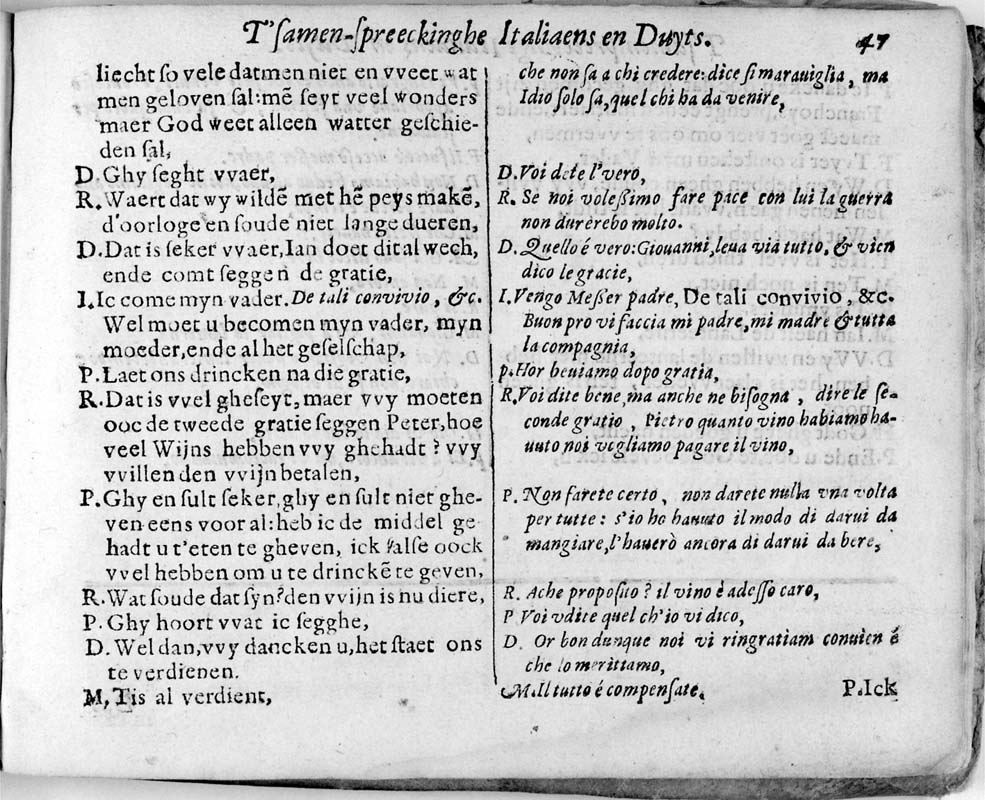 T'samen-spreeckinghe Italiaens en Duyts. 47
liecht so vele datmen niet en vveet wat
men geloven sal:mē seyt veel wonders
maer God weet alleen watter geschie-
den sal,
D. Ghy seght vvaer,
R. Waert dat wy wildē met hē peys makē,
d'oorloge en soude niet lange dueren,
D. Dat is seker vvaer, Ian doet dit al wech,
ende comt seggen de gratie,
I. Ic come myn vader. De tali convivio, &c.
Wel moet u becomen myn vader, myn
moeder, ende al het geselschap,
P. Laet ons drincken na die gratie,
R. Dat is vvel gheseyt, maer vvy moeten
ooc de tweede gratie seggen Peter, hoe
veel Wijns hebben vvy ghehadt? vvy
vvillen den vvijn betalen,
P. Ghy en sult seker, ghy en sult niet ghe-
ven eens voor al: heb ic de middel ge
hadt u t'eten te gheven, ick salse oock
vvel hebben om u te drinckē te geven,
R. Wat soude dat syn? den vvijn is nu diere,
P. Ghy hoort vvat ic segghe,
D. Wel dan, vvy dancken u, het staet ons
te verdienen.
M, Tis al verdient,
che non sa a chi credere: dice si marauiglia, ma
Idio solo sa, quel chi ha da venire,
D. Voi dete l'vero,
R. Se noi voleßimo fare pace con lui la guerra
non durerebo molto.
D. Quello é vero: Giouanni, leua via tutto, & vien
dico le gracie,
I. Vengo Meßer padre, De tali convivio, &c.
Buon pro vi faccia mi padre, mi madre & tutta
la compagnia,
p. Hor beuiamo dopo gratia,
R. Voi dite bene, ma anche ne bisogna, dire le se-
conde gratio, Pietro quanto vino habiamo ha-
uuto noi vogliamo pagare il vino,
P. Non farete certo, non darete nulla vna volta
per tutte: s'io ho hauuto il modo di darui da
mangiare, l'hauerò ancora di darui da bere,
R. Ache proposito? il vino è adesso caro,
P Voi vdite quel ch'io vi dico,
D. Or bon dunque noi vi ringratiam conuien é
che lo merittamo,
M. Il tutto é compensate,
P. Ick